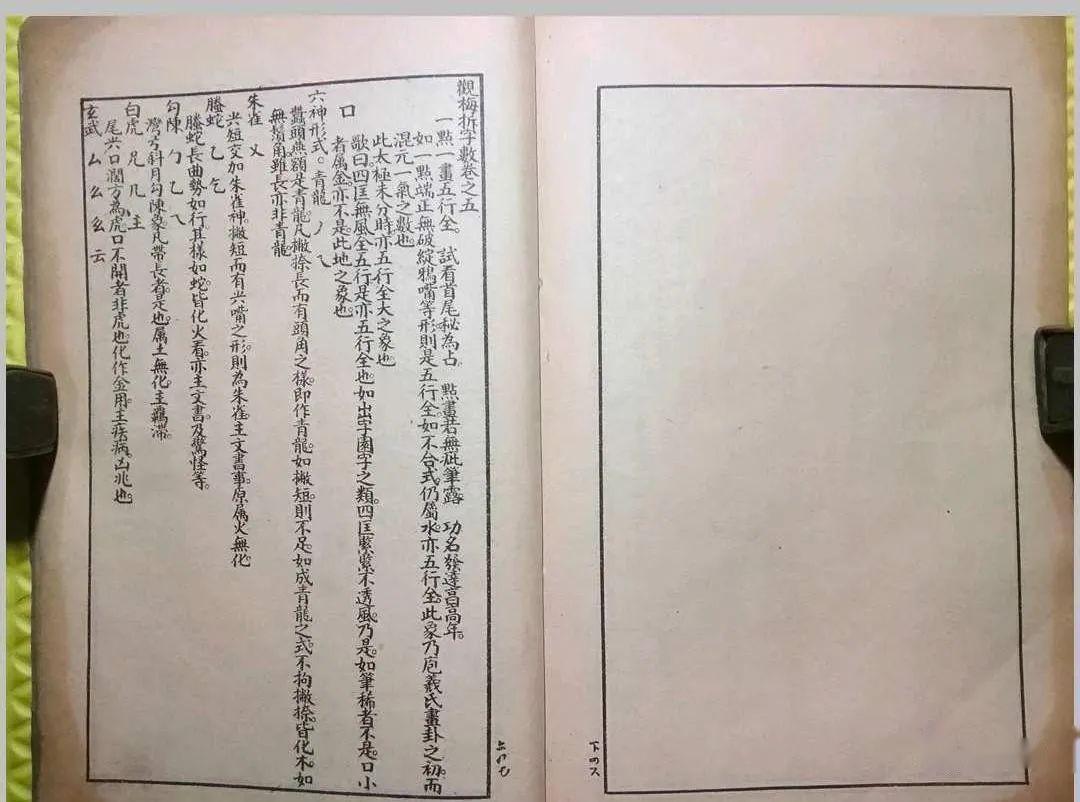 觀梅拆字數卷之五
一點一畫五行全。試看首尾秘為占。點畫若無疵筆露。功名發達高年。
如一點端正無破綻鴉嘴等形則是五行全。如不合式仍屬水。亦五行全。此象乃庖羲氏畫卦之初。而
混元一氣之數也
此太極未分時亦五行全大之象也
口 歌曰。四匡無風全五行是亦五行全也如出字園字之類。四匡緊緊不透風乃是。如筆稀者不是。口小
者属金亦不是。此地之象也。
六神形式。青龍丿乀
蠶頭燕額是青龍。凡撇捺長而有頭角之樣。即作青龍。如撇短則不足。如成青龍之式。不拘撇捺。皆化木。如
無鬚角雖長亦非青龍
朱雀 乂
尖短交加朱雀神。撇短而有尖嘴之形。則為朱雀。主文書事。原属火無化
螣蛇 乙 乞
螣蛇長曲勢如行。其樣如蛇。皆化火看。亦主文書。及驚怪等。
勾陳 勹 乙 乁
灣弓斜月勾陳象。凡帶長者是也。属土無化。主羈滯。
白虎 兄 几
尾尖口濶方為虎。口不開者非虎也。化作金用。主疾病凶兆也。
玄武 厶 么 幺 云